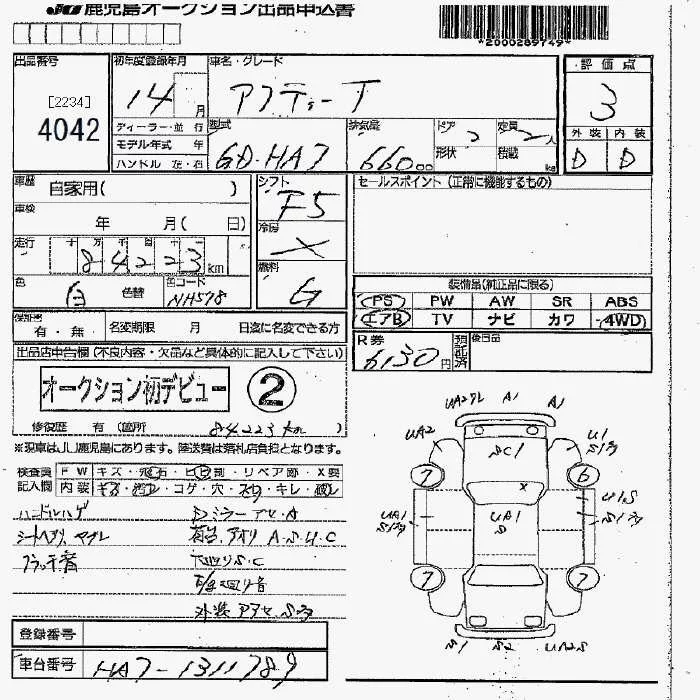 JU 鹿児島オークション出品申込書
*2000289749*
出品番号
[2234]
4042
初年度登録年月
14 月
車名・グレード
アクティーT
評価点
3
外装 内装
D D
ディーラー・並行
モデル年式 年
ハンドル 左・右
型式
GD-HA7
排気量
660 00
ドア 2
定員 2人
形状
積載 kg
車歴 自家用( )
車検 年 月( 日)
走行 十万千百十一
84223 km
色 白 色替
色コード NH578
シフト
F5
冷房
×
燃料
G
セールスポイント (正常に機能するもの)
装備品(純正品に限る)
PS PW AW SR ABS
エアB TV ナビ カワ 4WD
保証書
有・無
名変期限 月 日迄に名変できる方
R券
6130円
預託済
後日品
出品店申告欄(不良内容・欠品など具体的に記入して下さい)
オークション初デビュー ②
修復歴 有(箇所
84223km
※現車はJU鹿児島にあります。陸送費は落札店負担となります。
検査員
記入欄
FW キズ・飛石・ヒビ割・リペア跡・X要
内装 キズ・汚レ・コゲ・穴・スレ・キレ・破レ
ハンドルハゲ
シートヘタリ、ヤブレ
クラッチ音
ミラー アセ・A
荷台、アオリ A・S・U・C
下回りS・C
外装 アアセ、S多
UA2 A1 A1
UA2 SC1 U1 S多
7 6
×
UA1 S多
UA1 S
U1S
S1多
7 7
S1 S2 UA2S
登録番号
車台番号
HA7-1311789